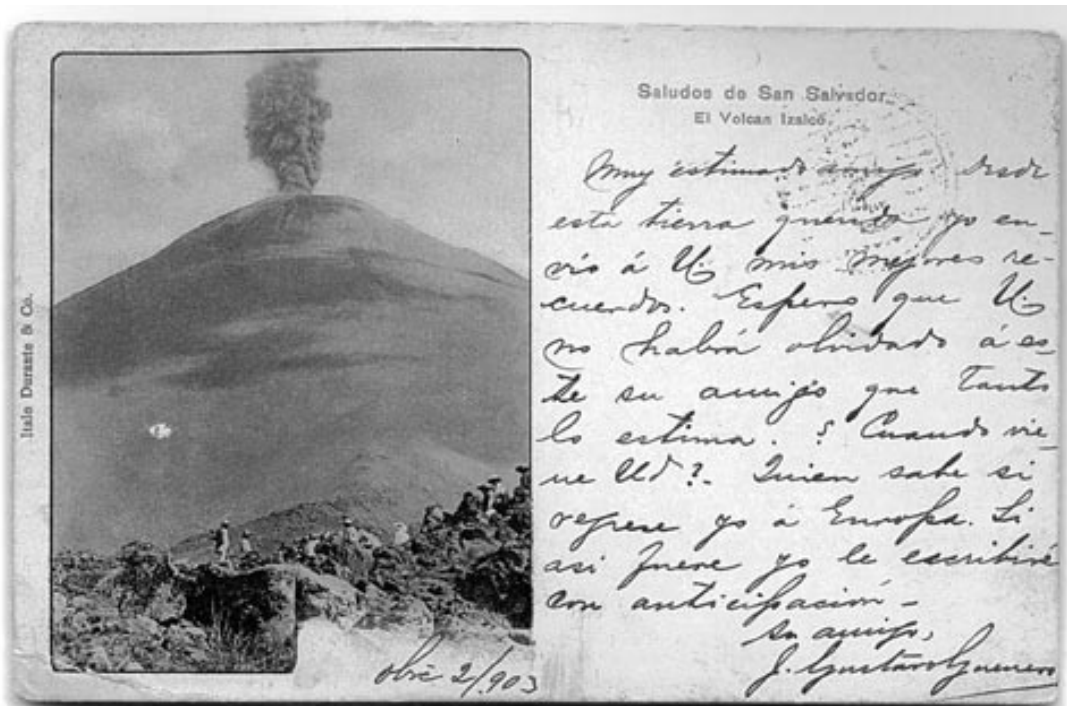 Saludos de San Salvador.
El Volcan Izalco.
Muy estimado amigo: desde
esta tierra querida yo en-
vío á U. mis mejores re-
cuerdos. Espero que U.
no habrá olvidado á es-
te su amigo que tanto
lo estima. ¿Cuando vie-
ne Ud?. Quien sabe si
regrese yo á Europa. Si
asi fuere yo le escribiré
con anticipación -
Su amigo,
J. Gustavo Guerrero
Italo Durante & Co.
2/903